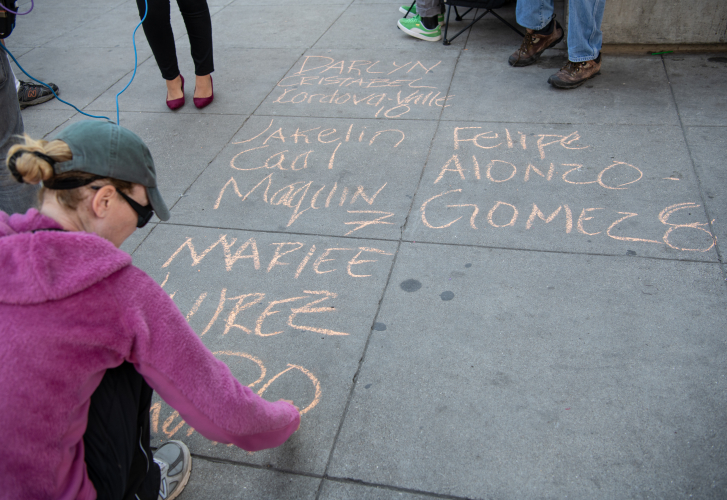 DARLYN
Cordova-Valle
10
Jakelin
Caal
Maquin
7
Felipe
ALONZO-
GOMEZ 8
MARIEE